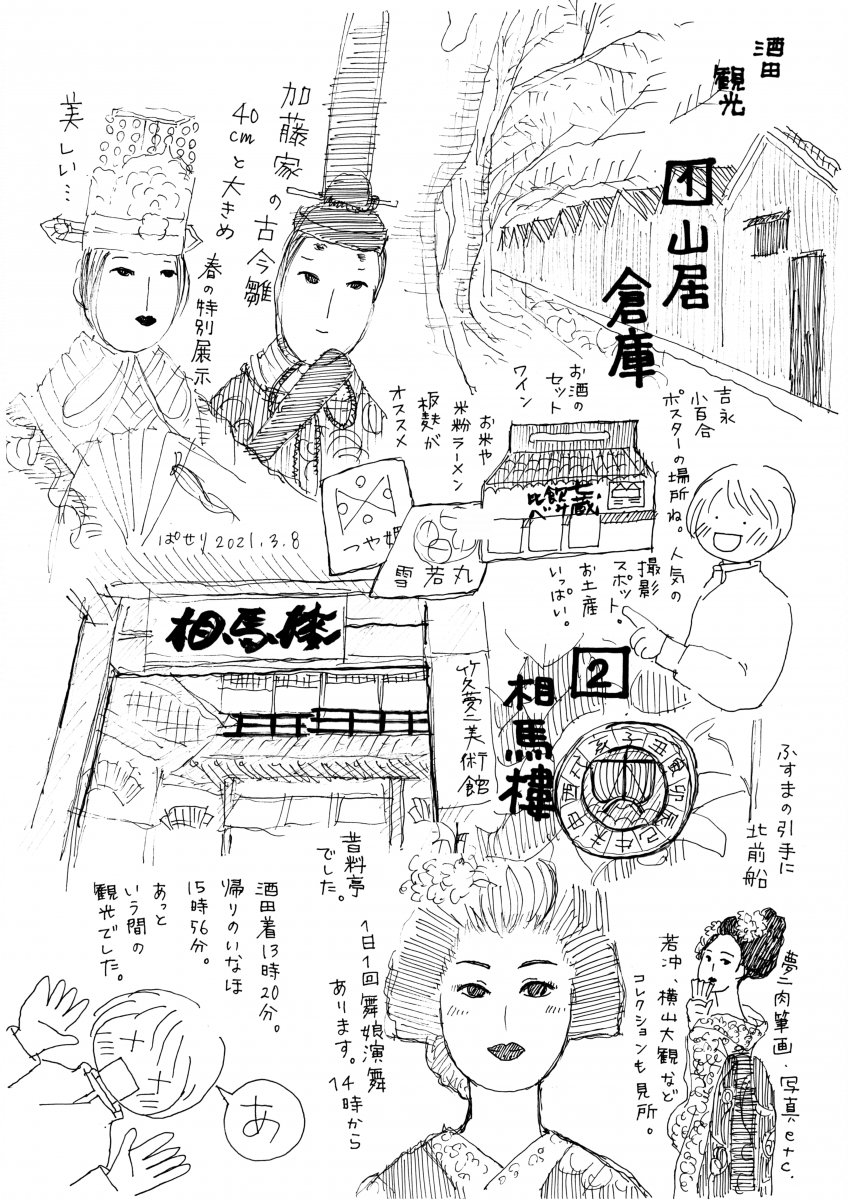 酒田
観光
1 山居
倉庫
加藤家の古今雛
40cmと大きめ
春の特別展示
美しい…
吉永
小百合
ポスターの場所ね。人気の
撮影
スポット。
お土産
いっぱい。
お酒の
セット
ワイン
お米や
米粉ラーメン
板麩が
オススメ
つや姫
雪若丸
ぱせり 2021.3.8
相馬樓
2
相馬樓
竹久夢二美術館
子丑寅卯辰巳午未申酉戌亥
ふすまの引手に
北前船
昔料亭
でした。
1日1回舞娘演舞
あります。14時から
夢二肉筆画・写真、etc.
若冲、横山大観など
コレクションも見所。
酒田着13時20分。
帰りのいなほ
15時56分。
あっと
いう間の
観光でした。
あ